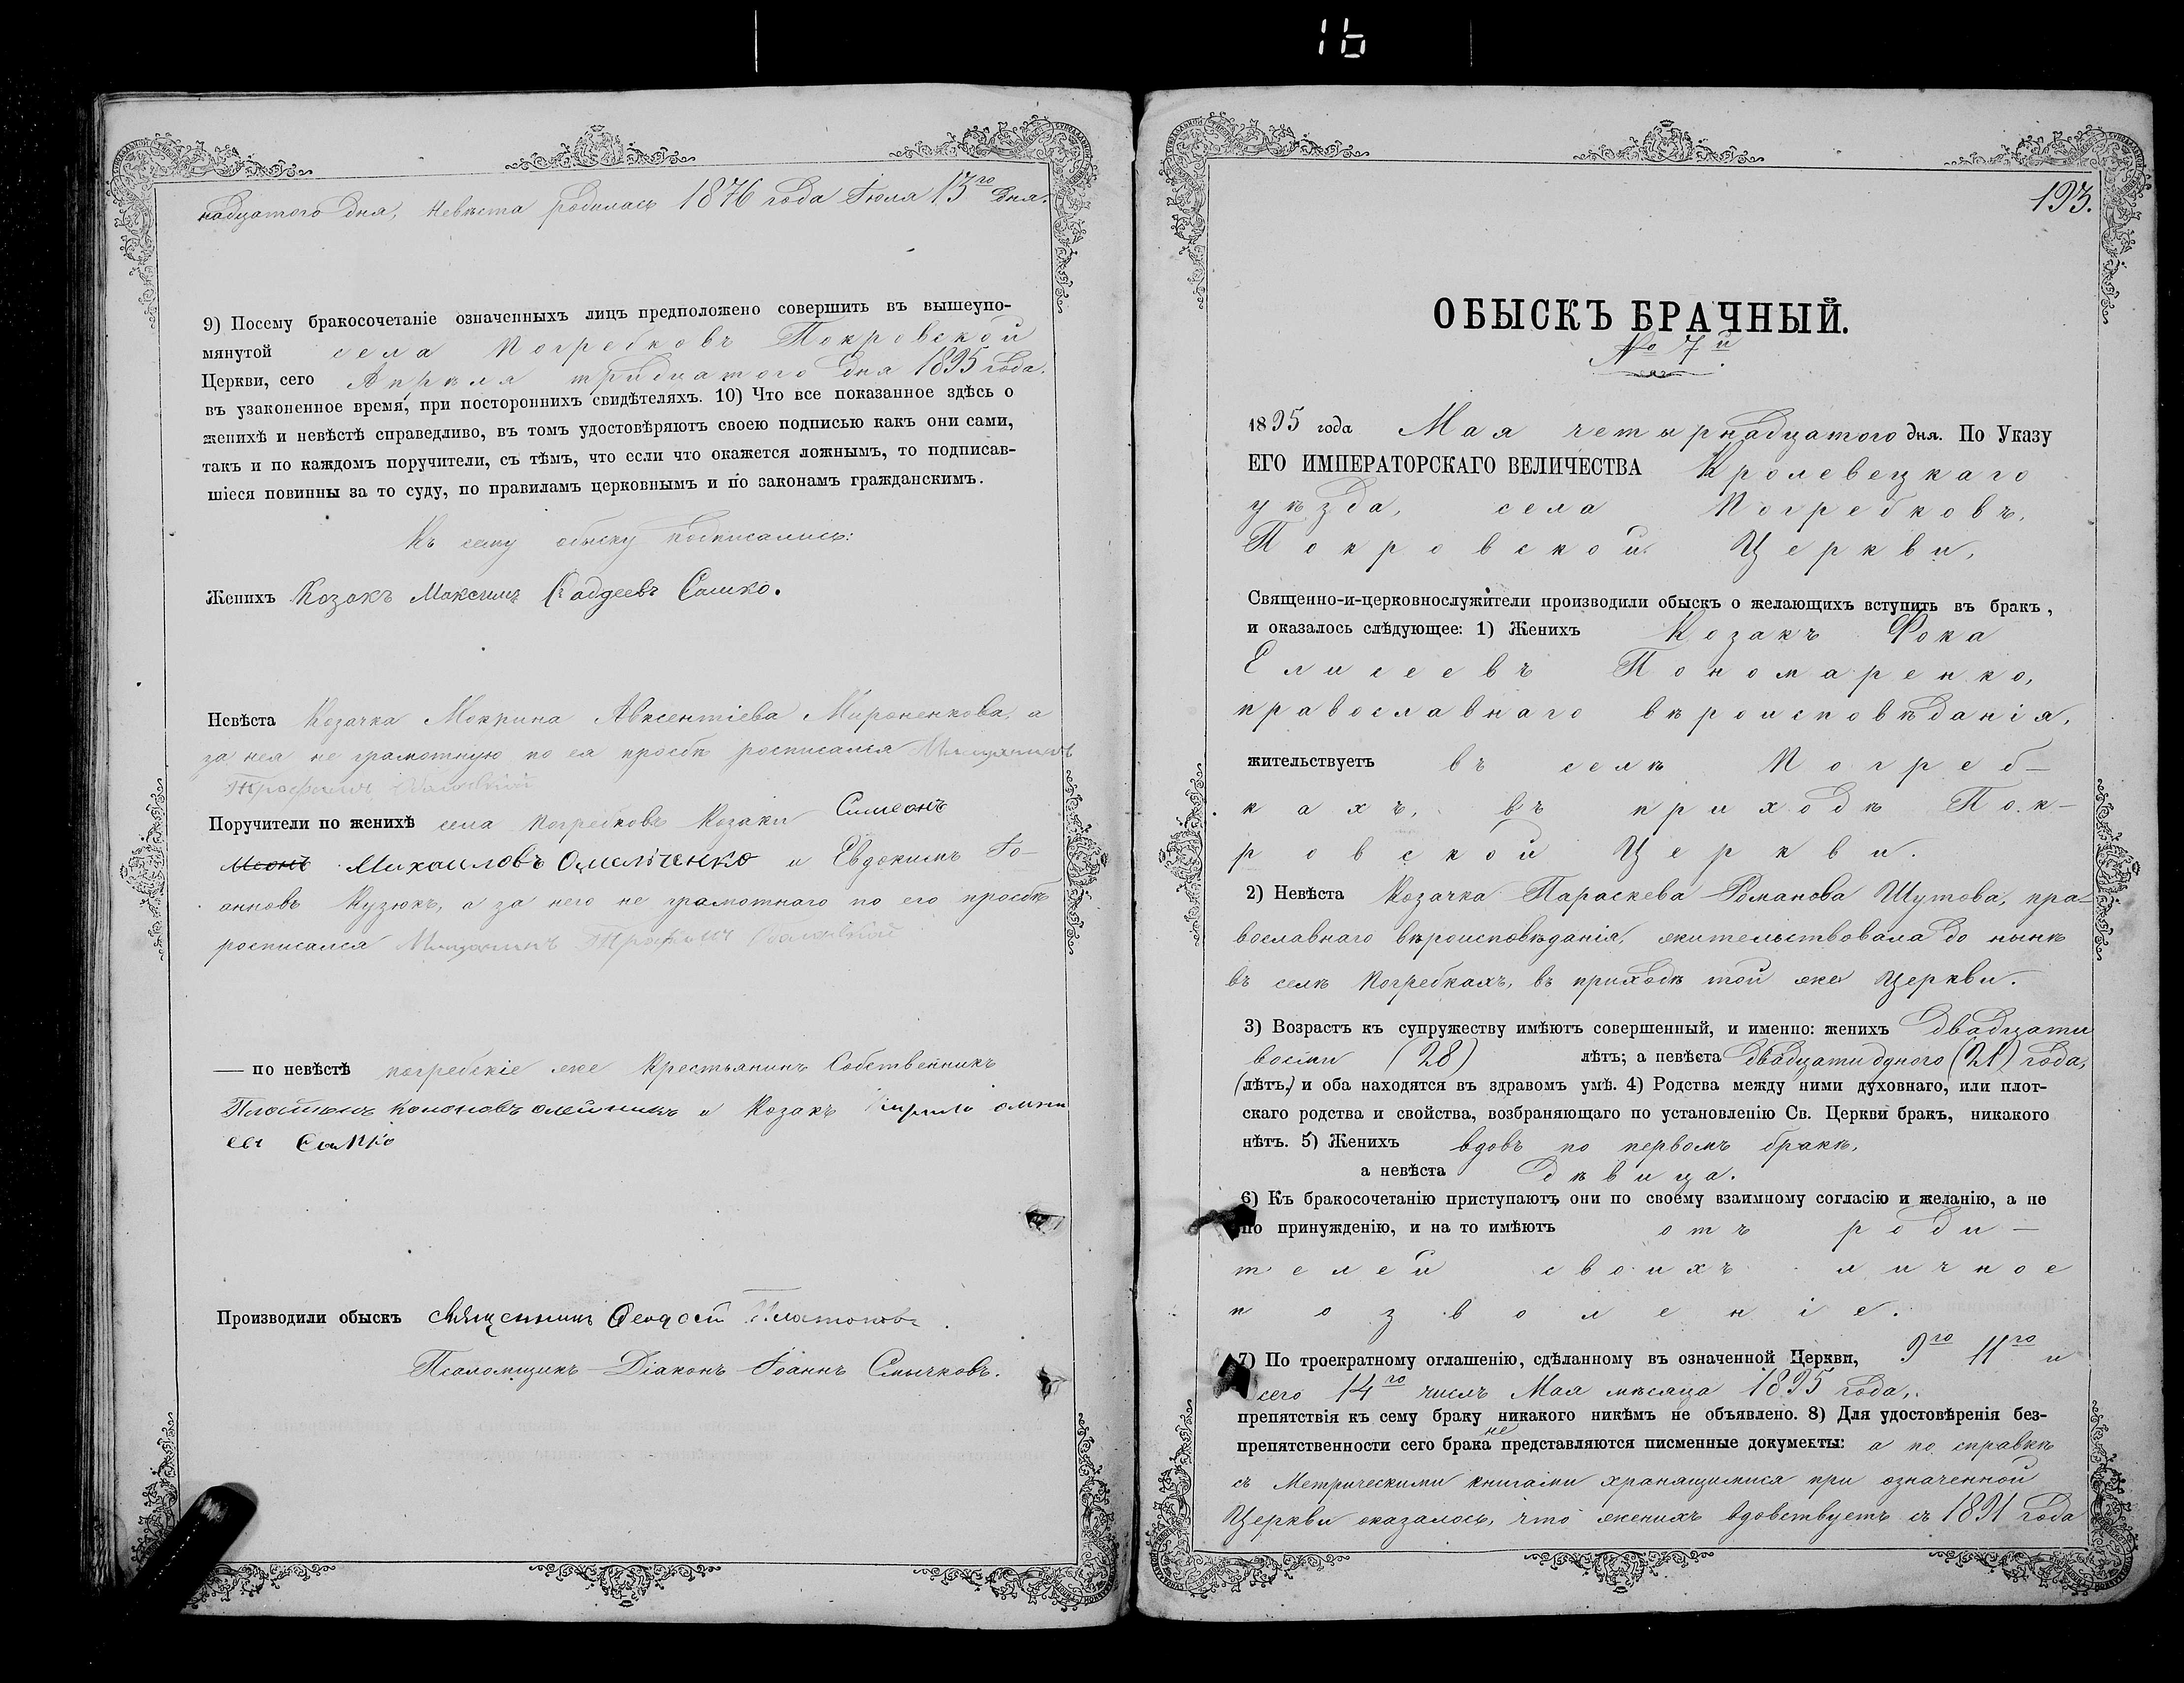 16
надцатого дня, Невѣста родилась 1876 года Іюля 13го дня.
9) Посему бракосочетаніе означенныхъ лицъ предположено совершить въ вышеупо-
мянутой села Погребковъ Покровской
Церкви, сего Апрѣля тридцатого дня 1895 года.
въ узаконенное время, при постороннихъ свидѣтеляхъ. 10) Что все показанное здѣсь о
женихѣ и невѣстѣ справедливо, въ томъ удостовѣряютъ своею подписью какъ они сами,
такъ и по каждомъ поручители, съ тѣмъ, что если что окажется ложнымъ, то подписав-
шіеся повинны за то суду, по правиламъ церковнымъ и по законамъ гражданскимъ.
Къ сему обыску подписались:
Женихъ Козакъ Максимъ Сашко.
Невѣста Козачка Мокрина Авксентіева Мироненкова, а
за нея не грамотную по ея просьбѣ росписался Мищанинъ
Трофимъ
Поручители по женихѣ села Погребковъ Козаки Симеонъ
Михаиловъ Омельченко и Евдокимъ Іо-
анновъ Кузюкъ, а за него не грамотнаго по его просьбѣ
росписался Мищанинъ Трофимъ
— по невѣстѣ погребскіе же Крестьянинъ Собственникъ
Платонъ Кононовъ олейникъ и Козакъ Кирило
евъ Сашко
Производили обыскъ священникъ Феодосій Платоновъ.
Псаломщикъ-Діаконъ Іоаннъ Смычковъ.
193.
ОБЫСКЪ БРАЧНЫЙ.
№ 7й
1895 года Мая четырнадцатого дня. По Указу
ЕГО ИМПЕРАТОРСКАГО ВЕЛИЧЕСТВА Кролевецкаго
уѣзда, села Погребковъ,
Покровской Церкви,
Священно-и-церковнослужители производили обыскъ о желающихъ вступить въ бракъ,
и оказалось слѣдующее: 1) Женихъ Козакъ Фока
Елисеевъ Пономаренко,
православнаго вѣроисповѣданія,
жительствуетъ въ селѣ Погреб-
кахъ, въ приходѣ Пок-
ровской Церкви.
2) Невѣста Козачка Параскева Романова Шутова, пра-
вославнаго вѣроисповѣданія, жительствовала до нынѣ
въ селѣ Погребкахъ, въ приходѣ той же Церкви.
3) Возрастъ къ супружеству имѣютъ совершенный, и именно: женихъ двадцати
восьми (28) лѣтъ; а невѣста двадцати одного (21) года,
(лѣтъ,) и оба находятся въ здравомъ умѣ. 4) Родства между ними духовнаго, или плот-
скаго родства и свойства, возбраняющаго по установленію Св. Церкви бракъ, никакого
нѣтъ. 5) Женихъ вдовъ по первомъ бракѣ,
а невѣста дѣвица.
6) Къ бракосочетанію приступаютъ они по своему взаимному согласію и желанію, а не
по принужденію, и на то имѣютъ отъ роди-
телей своихъ личное
позволеніе.
7) По троекратному оглашенію, сдѣланному въ означенной Церкви, 9го 11го и
сего 14го числъ Мая мѣсяца 1895 года,
препятствія къ сему браку никакого никѣмъ не объявлено. 8) Для удостовѣренія без-
препятственности сего брака не представляются писменные документы: а по справкѣ
съ Метрическими книгами хранящимися при означенной
Церкви оказалось, что женихъ вдовствуетъ съ 1891 года